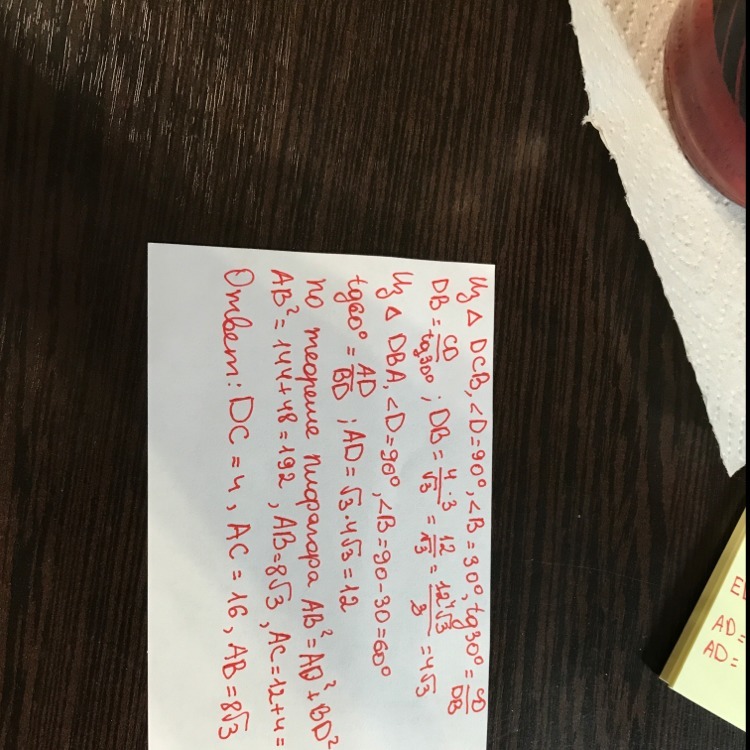 Из △ DCB, ∠D=90°, ∠B=30°, tg30° = CD/DB
DB = CD/tg30° ; DB = 4·3/√3 = 12/√3 = 12√3/3 = 4√3
Из △ DBA, ∠D=90°, ∠B=90-30=60°
tg60° = AD/BD ; AD=√3·4√3=12
по теореме пифагора AB²=AD²+BD²
AB²=144+48=192, AB=8√3, AC=12+4=
Ответ: DC=4, AC=16, AB=8√3
AD=
AD=